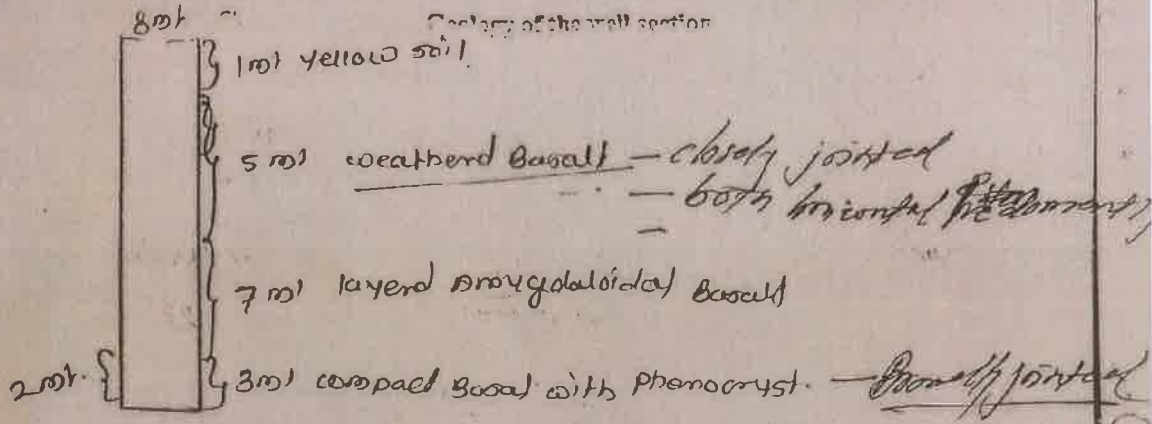 8mt
Geology of the well section
1mt yellow soil
5 mt weatherd Basalt — closely jointed
— both horizontal
—
7 mt layerd Amygdaloidal Basalt
2mt. 3mt compact Basal with phenocryst. — jointed